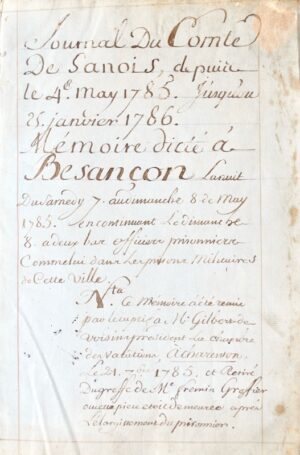 Journal Du Comte
De Sanois, depuis
le 4e. may 1785. Jusqu'au
25 janvier 1786.
Mémoire dicté à
Besançon La nuit
Du samedy 7. au dimanche 8 de May
1785. en continuant Le dimanche
8. a deux bas officiers prisonniers
Comme lui dans Les prisons Militaires
de Cette Ville.
Nta
Ce Mémoire a été remis
par le à Mr Gilbert de
Voisin président La
des Vacations,
Le 21. 7bre 1785, et Retiré
Du greffe de Me fremin Greffier
où cette piece etoit demeurée après
L'elargissement du prisonnier.